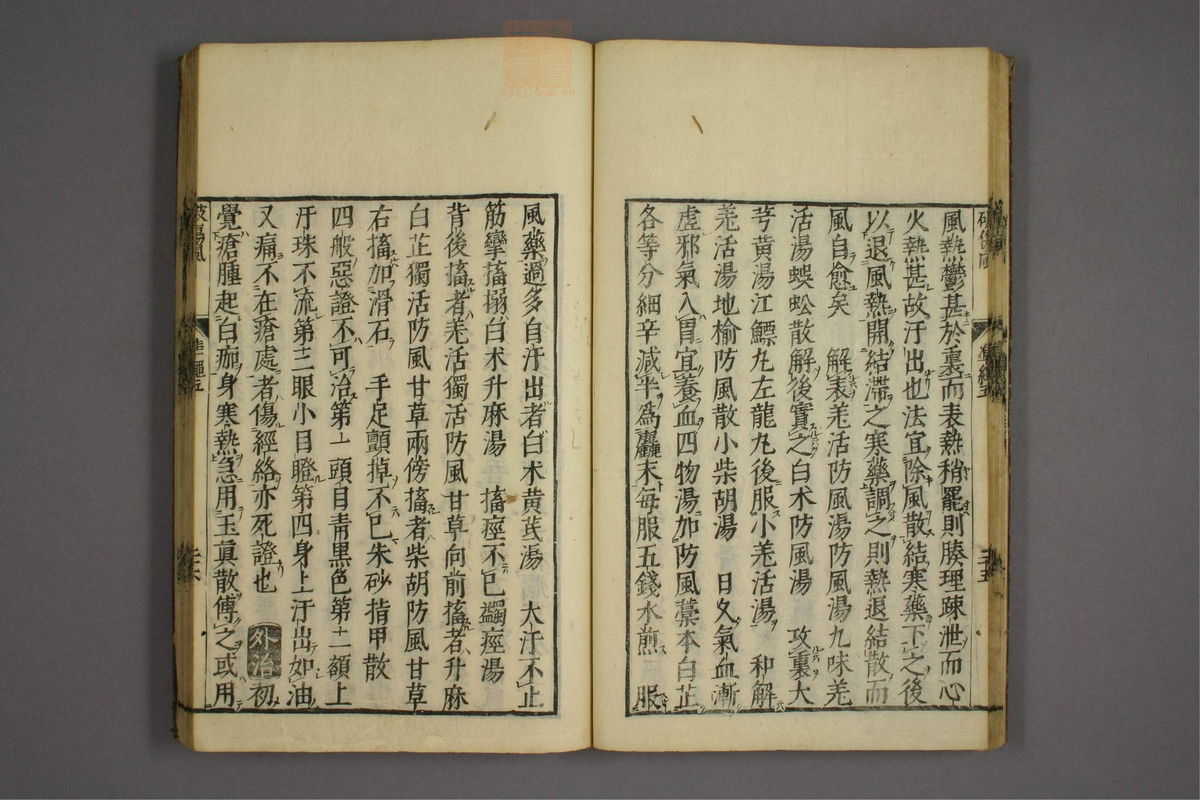 風熱鬱甚於裏而表熱稍罷則腠理疎泄而心
火熱甚故汗出也法宜除風散結寒藥下之後
以退風熱開結滯之寒藥調之則熱退結散而
風自愈矣 解表羌活防風湯防風湯九味羌
活湯蜈蚣散解後實之白术防風湯 攻裏大
芎黄湯江鰾丸左龍丸後服小羌活湯 和解
羌活湯地榆防風散小柴胡湯 日久氣血漸
虚邪氣入胃宜養血四物湯加防風藁本白芷
各等分細辛減半爲麤末每服五錢水煎 服
風藥過多自汗出者白术黄芪湯 大汗不止
筋攣搐搦白术升麻湯 搐痙不已蠲痙湯
背後搐者羌活獨活防風甘草向前搐者升麻
白芷獨活防風甘草兩傍搐者柴胡防風甘草
右搐加滑石 手足顫掉不已朱砂指甲散
四般惡證不可治第一頭目青黑色第二額上
汗珠不流第三眼小目瞪第四身上汗出如油
又痛不在瘡處者傷經絡亦死證也 外治 初
覺瘡腫起白痂身寒熱急用玉眞散傅之或用
破傷風 準繩五 三十六